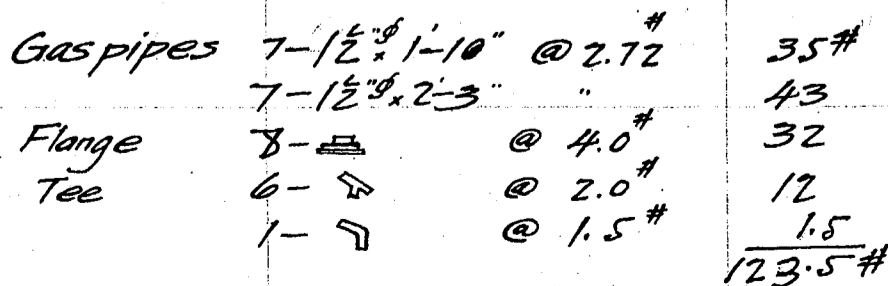 Gas pipes 7-1½"φ x 1'-10" @ 2.72# 35#
7-1½"φ x 2'-3" " 43
Flange 8- @ 4.0# 32
Tee 6- @ 2.0# 12
1- @ 1.5# 1.5
123.5#